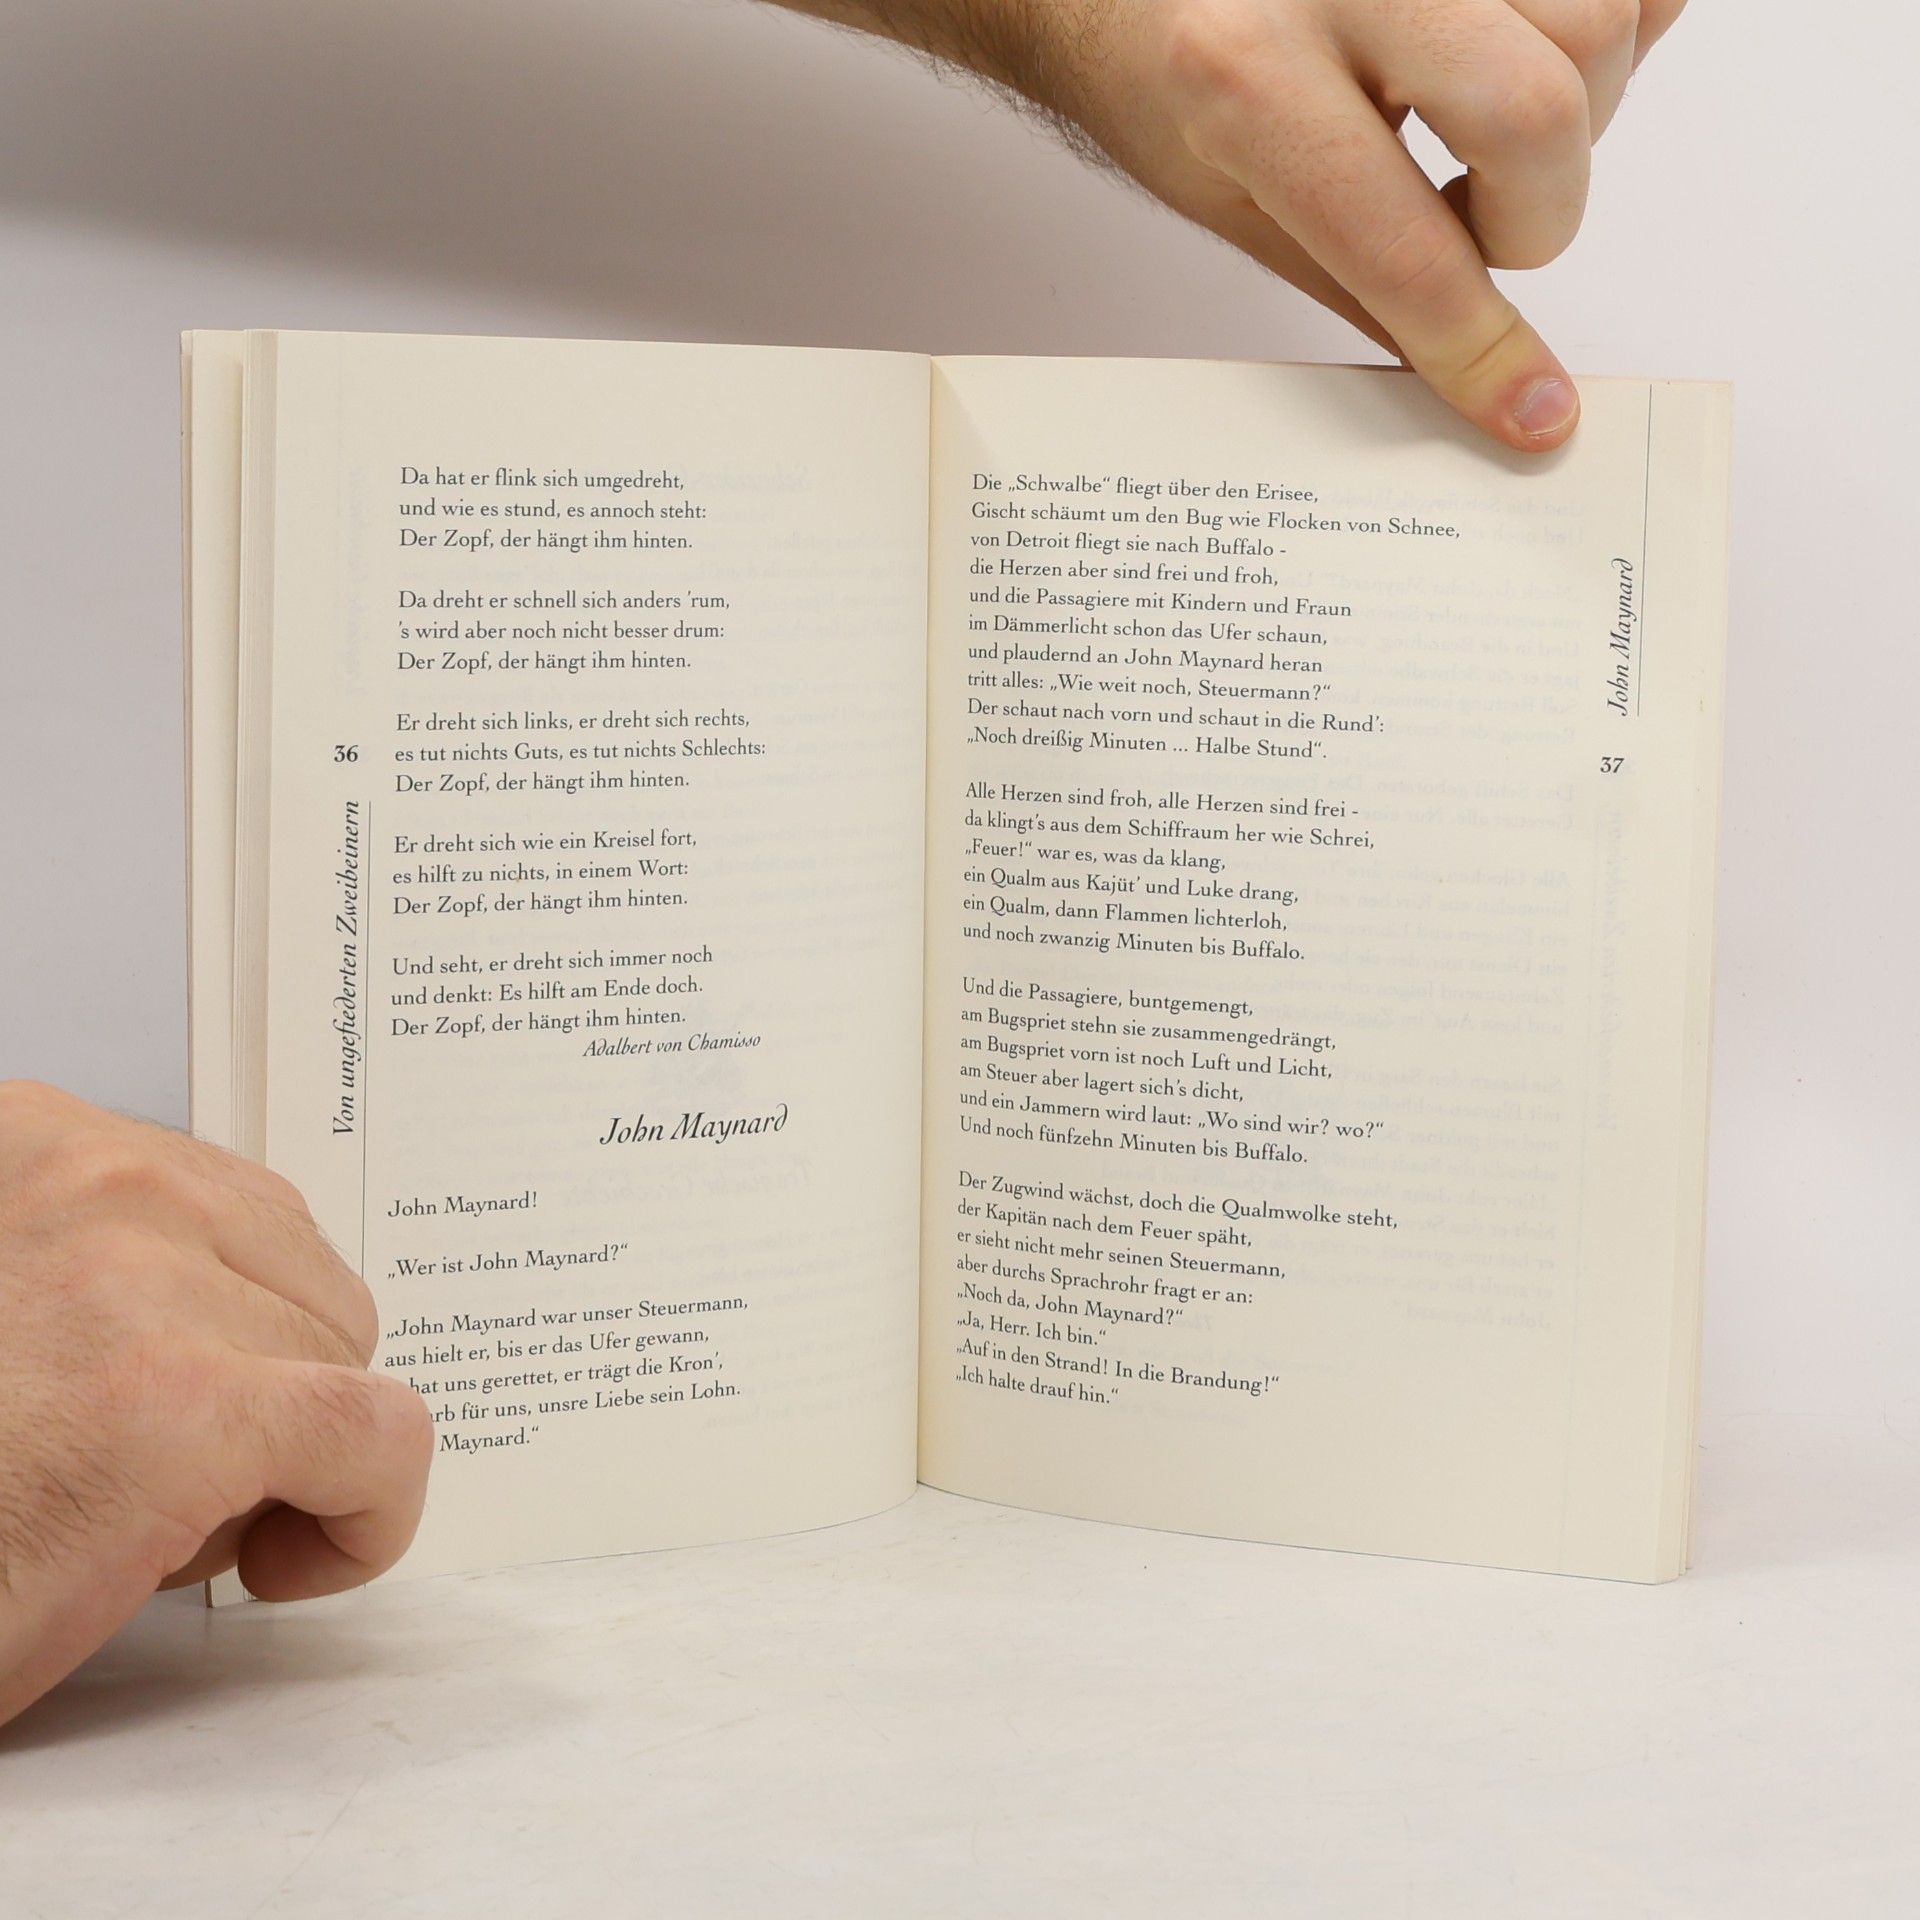 Da hat er flink sich umgedreht,
und wie es stund, es annoch steht:
Der Zopf, der hängt ihm hinten.
Da dreht er schnell sich anders ’rum,
’s wird aber noch nicht besser drum:
Der Zopf, der hängt ihm hinten.
Er dreht sich links, er dreht sich rechts,
es tut nichts Guts, es tut nichts Schlechts:
Der Zopf, der hängt ihm hinten.
Er dreht sich wie ein Kreisel fort,
es hilft zu nichts, in einem Wort:
Der Zopf, der hängt ihm hinten.
Und seht, er dreht sich immer noch
und denkt: Es hilft am Ende doch.
Der Zopf, der hängt ihm hinten.
Adalbert von Chamisso
John Maynard
John Maynard!
„Wer ist John Maynard?“
„John Maynard war unser Steuermann,
aus hielt er, bis er das Ufer gewann,
hat uns gerettet, er trägt die Kron’,
für uns, unsre Liebe sein Lohn.
Maynard.“
36
Von ungefiederten Zweibeinern
Die „Schwalbe“ fliegt über den Erisee,
Gischt schäumt um den Bug wie Flocken von Schnee,
von Detroit fliegt sie nach Buffalo -
die Herzen aber sind frei und froh,
und die Passagiere mit Kindern und Fraun
im Dämmerlicht schon das Ufer schaun,
und plaudernd an John Maynard heran
tritt alles: „Wie weit noch, Steuermann?“
Der schaut nach vorn und schaut in die Rund’:
„Noch dreißig Minuten ... Halbe Stund“.
Alle Herzen sind froh, alle Herzen sind frei -
da klingt’s aus dem Schiffraum her wie Schrei,
„Feuer!“ war es, was da klang,
ein Qualm aus Kajüt’ und Luke drang,
ein Qualm, dann Flammen lichterloh,
und noch zwanzig Minuten bis Buffalo.
Und die Passagiere, buntgemengt,
am Bugspriet stehn sie zusammengedrängt,
am Bugspriet vorn ist noch Luft und Licht,
am Steuer aber lagert sich’s dicht,
und ein Jammern wird laut: „Wo sind wir? wo?“
Und noch fünfzehn Minuten bis Buffalo.
Der Zugwind wächst, doch die Qualmwolke steht,
der Kapitän nach dem Feuer späht,
er sieht nicht mehr seinen Steuermann,
aber durchs Sprachrohr fragt er an:
„Noch da, John Maynard?“
„Ja, Herr. Ich bin.“
„Auf in den Strand! In die Brandung!“
„Ich halte drauf hin.“
John Maynard
37